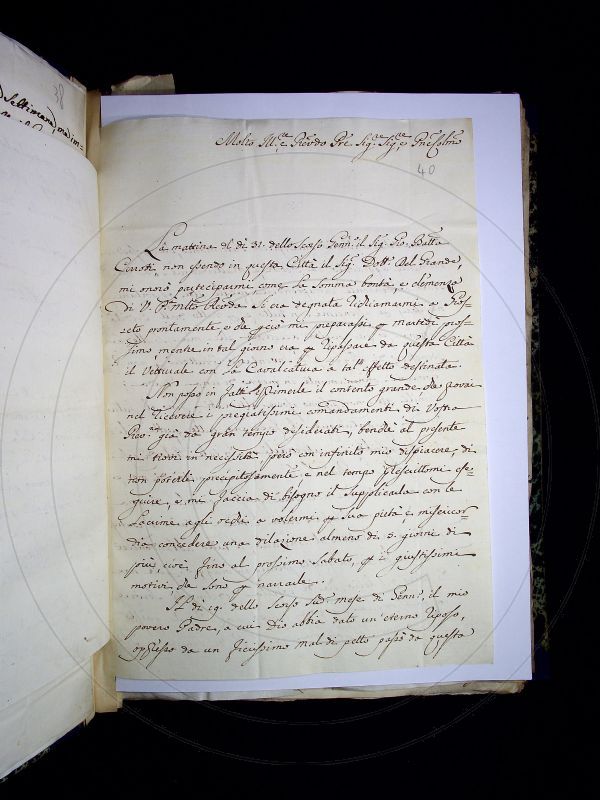 Settimana, ma im=
38
Molto Ill.re e Rev.do Pre Sig.re Sig.re e Pne Col.mo
40
La mattina del dì 31. dello scorso Genn.o il Sig. Gio. Batta
non essendo in questa Città il Sig. Dott. Del Grande,
mi onorò parteciparmi come la somma bontà, e clemenza
di V. P. Molto Rev.da si era degnata richiamarmi a
prontamente, e che perciò mi preparassi p martedì pros=
simo, mentre in tal giorno era p ripassare da questa Città
il Vetturale con la Cavalcatura a tal' effetto destinata.
Non posso in fatti esprimerle il contento grande, che provai
nel ricevere i pregiatissimi comandamenti di Vostra
Rev. già da gran tempo desiderati, benchè al presente
mi trovi in necessità però con infinito mio dispiacere, di
non poterli precipitosamente, e nel tempo prescrittomi ese=
guire, e mi faccia di bisogno il supplicarla con le
lacrime agli occhi a volermi p sua pietà, e misericor=
dia concedere una dilazione almeno di 5. giorni di
più, cioè fino al prossimo Sabato, p i giustissimi
motivi, che sono p narrarle.
Al dì 19. dello scorso mese di Genn.o il mio
povero Padre, a cui Dio abbia dato un' eterno riposo,
oppresso da un fierissimo mal di petto passò da questa